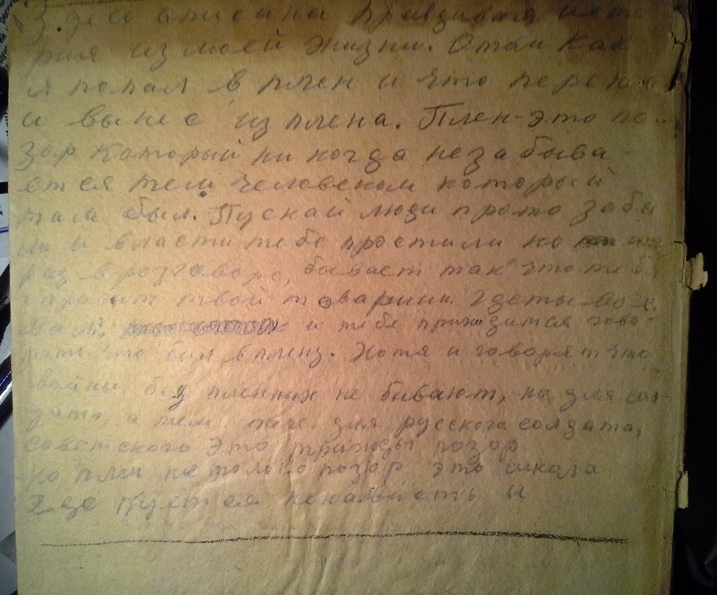 Здесо описана правдивая исто
рия из моей жизни. О том как
я попал в плен и что перене
и вынес из плена. Плен-это по-
зор который ни когда незабыва-
ется тем человеком который
там был. Пускай люди про то забы
ли и власти тебе простили но
раз в розговоре, бывает так что тебя
спросит твой товарищ. Где ты вое
вал, и тебе приходится гово-
рить что был в плену. Хотя и говорят что
войны без пленных не бывают, но для сол-
дата, а тем паче, для русского солдата,
советского это трижды позор.
но плен не только позор это школа
где куется ненависть и